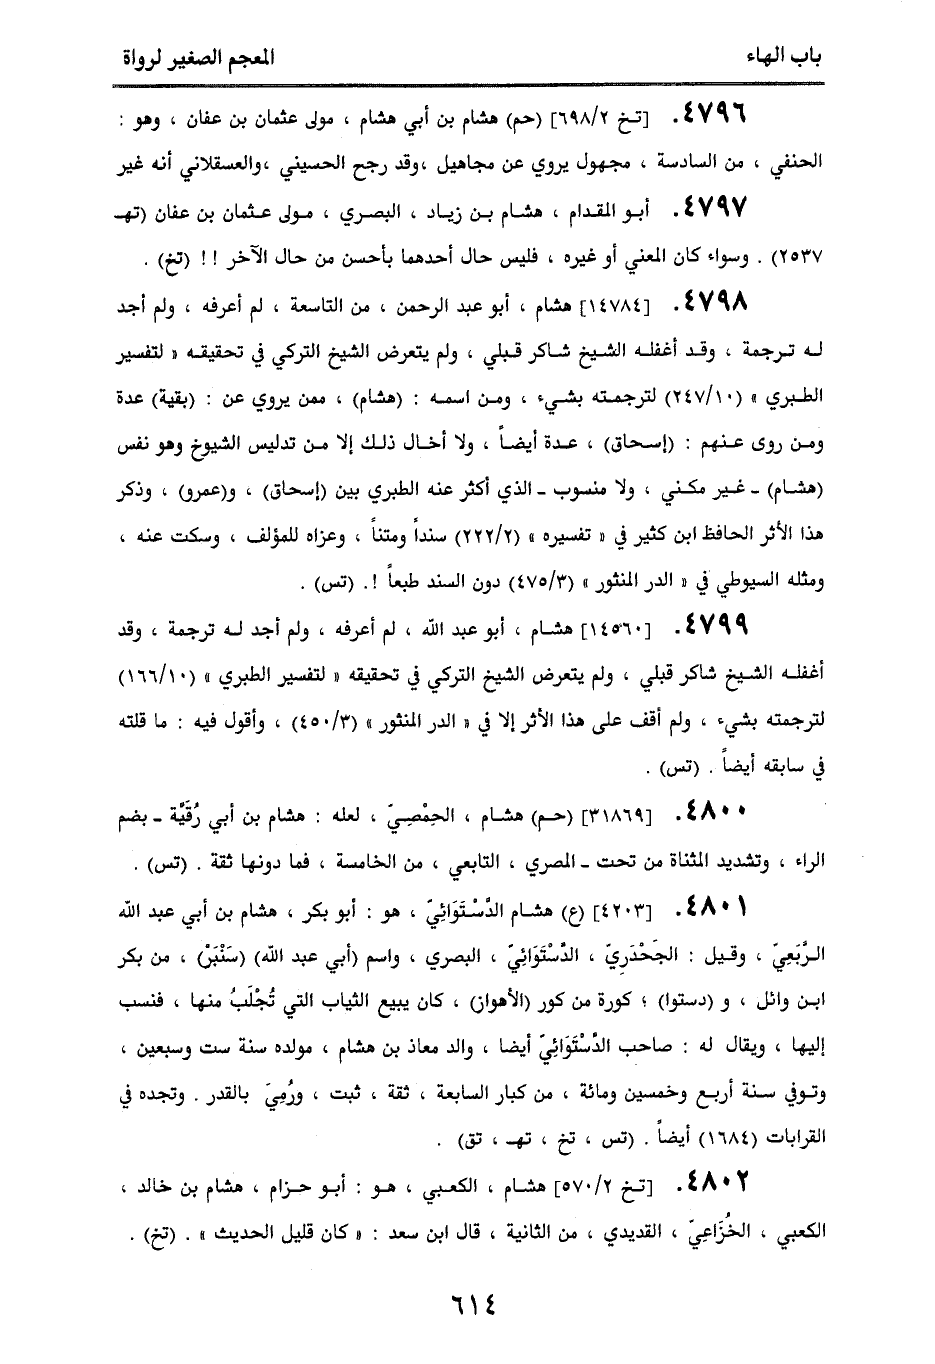 باب الهاء
المعجم الصغير لرواة
٤٧٩٦. [تخ ٦٩٨/٢] (حم) هشام بن أبي هشام ، مولى عثمان بن عفان ، وهو :
الحنفي ، من السادسة ، مجهول يروي عن مجاهيل ،وقد رجح الحسيني ،والعسقلاني أنه غير
٤٧٩٧. أبو المقدام ، هشام بن زياد ، البصري ، مولى عثمان بن عفان (تهـ
٢٥٣٧) . وسواء كان المعني أو غيره ، فليس حال أحدهما بأحسن من حال الآخر ! ! (تخ) .
٤٧٩٨. [١٤٧٨٤] هشام ، أبو عبد الرحمن ، من التاسعة ، لم أعرفه ، ولم أجد
له ترجمة ، وقد أغفله الشيخ شاكر قبلي ، ولم يتعرض الشيخ التركي في تحقيقه « لتفسير
الطبري » (٢٤٧/١٠) لترجمته بشيء ، ومن اسمه : (هشام) ، ممن يروي عن : (بقية) عدة
ومن روى عنهم : (إسحاق) ، عدة أيضاً ، ولا أخال ذلك إلا من تدليس الشيوخ وهو نفس
(هشام) ـ غير مكني ، ولا منسوب ـ الذي أكثر عنه الطبري بين (إسحاق) ، و(عمرو) ، وذكر
هذا الأثر الحافظ ابن كثير في « تفسيره » (٢٢٢/٢) سنداً ومتناً ، وعزاه للمؤلف ، وسكت عنه ،
ومثله السيوطي في « الدر المنثور » (٤٧٥/٣) دون السند طبعاً !. (تس) .
٤٧٩٩. [١٤٥٦٠] هشام ، أبو عبد الله ، لم أعرفه ، ولم أجد له ترجمة ، وقد
أغفله الشيخ شاكر قبلي ، ولم يتعرض الشيخ التركي في تحقيقه « لتفسير الطبري » (١٦٦/١٠)
لترجمته بشيء ، ولم أقف على هذا الأثر إلا في « الدر المنثور » (٤٥٠/٣) ، وأقول فيه : ما قلته
في سابقه أيضاً . (تس) .
٤٨٠٠. [٣١٨٦٩] (حم) هشام ، الحِمْصِيّ ، لعله : هشام بن أبي رُقَيَّة ـ بضم
الراء ، وتشديد المثناة من تحت ـ المصري ، التابعي ، من الخامسة ، فما دونها ثقة . (تس) .
٤٨٠١. [٤٢٠٣] (ع) هشام الدَّسْتَوَائِيّ ، هو : أبو بكر ، هشام بن أبي عبد الله
الرَّبَعِيّ ، وقيل : الجَحْدَرِيّ ، الدَّسْتَوَائِيّ ، البصري ، واسم (أبي عبد الله) (سَنْبَرْ) ، من بكر
ابن وائل ، و (دستوا) ؛ كورة من كور (الأهواز) ، كان يبيع الثياب التي تُجْلَبُ منها ، فنسب
إليها ، ويقال له : صاحب الدَّسْتَوَائِيّ أيضا ، والد معاذ بن هشام ، مولده سنة ست وسبعين ،
وتوفي سنة أربع وخمسين ومائة ، من كبار السابعة ، ثقة ، ثبت ، ورُمِيَ بالقدر . وتجده في
القرابات (١٦٨٤) أيضاً . (تس ، تخ ، تهـ ، تق) .
٤٨٠٢. [تخ ٥٧٠/٢] هشام ، الكعبي ، هو : أبو حزام ، هشام بن خالد ،
الكعبي ، الخُزَاعِيّ ، القديدي ، من الثانية ، قال ابن سعد : « كان قليل الحديث » . (تخ) .
٦١٤